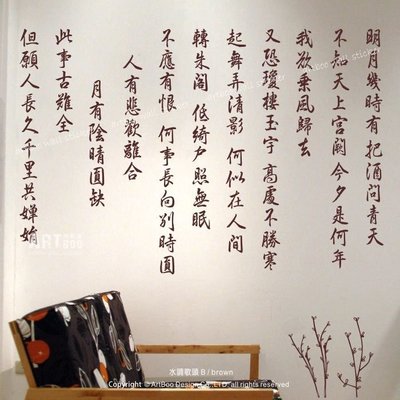 明月幾時有 把酒問青天
不知天上宮闕 今夕是何年
我欲乘風歸去
又恐瓊樓玉宇 高處不勝寒
起舞弄清影 何似在人間
轉朱閣 低綺戶 照無眠
不應有恨 何事長向別時圓
人有悲歡離合
月有陰晴圓缺
此事古難全
但願人長久 千里共嬋娟
ART BOO
水調歌頭 B / brown
Copyright © ArtBoo Design Co.,LTD. all rights reserved